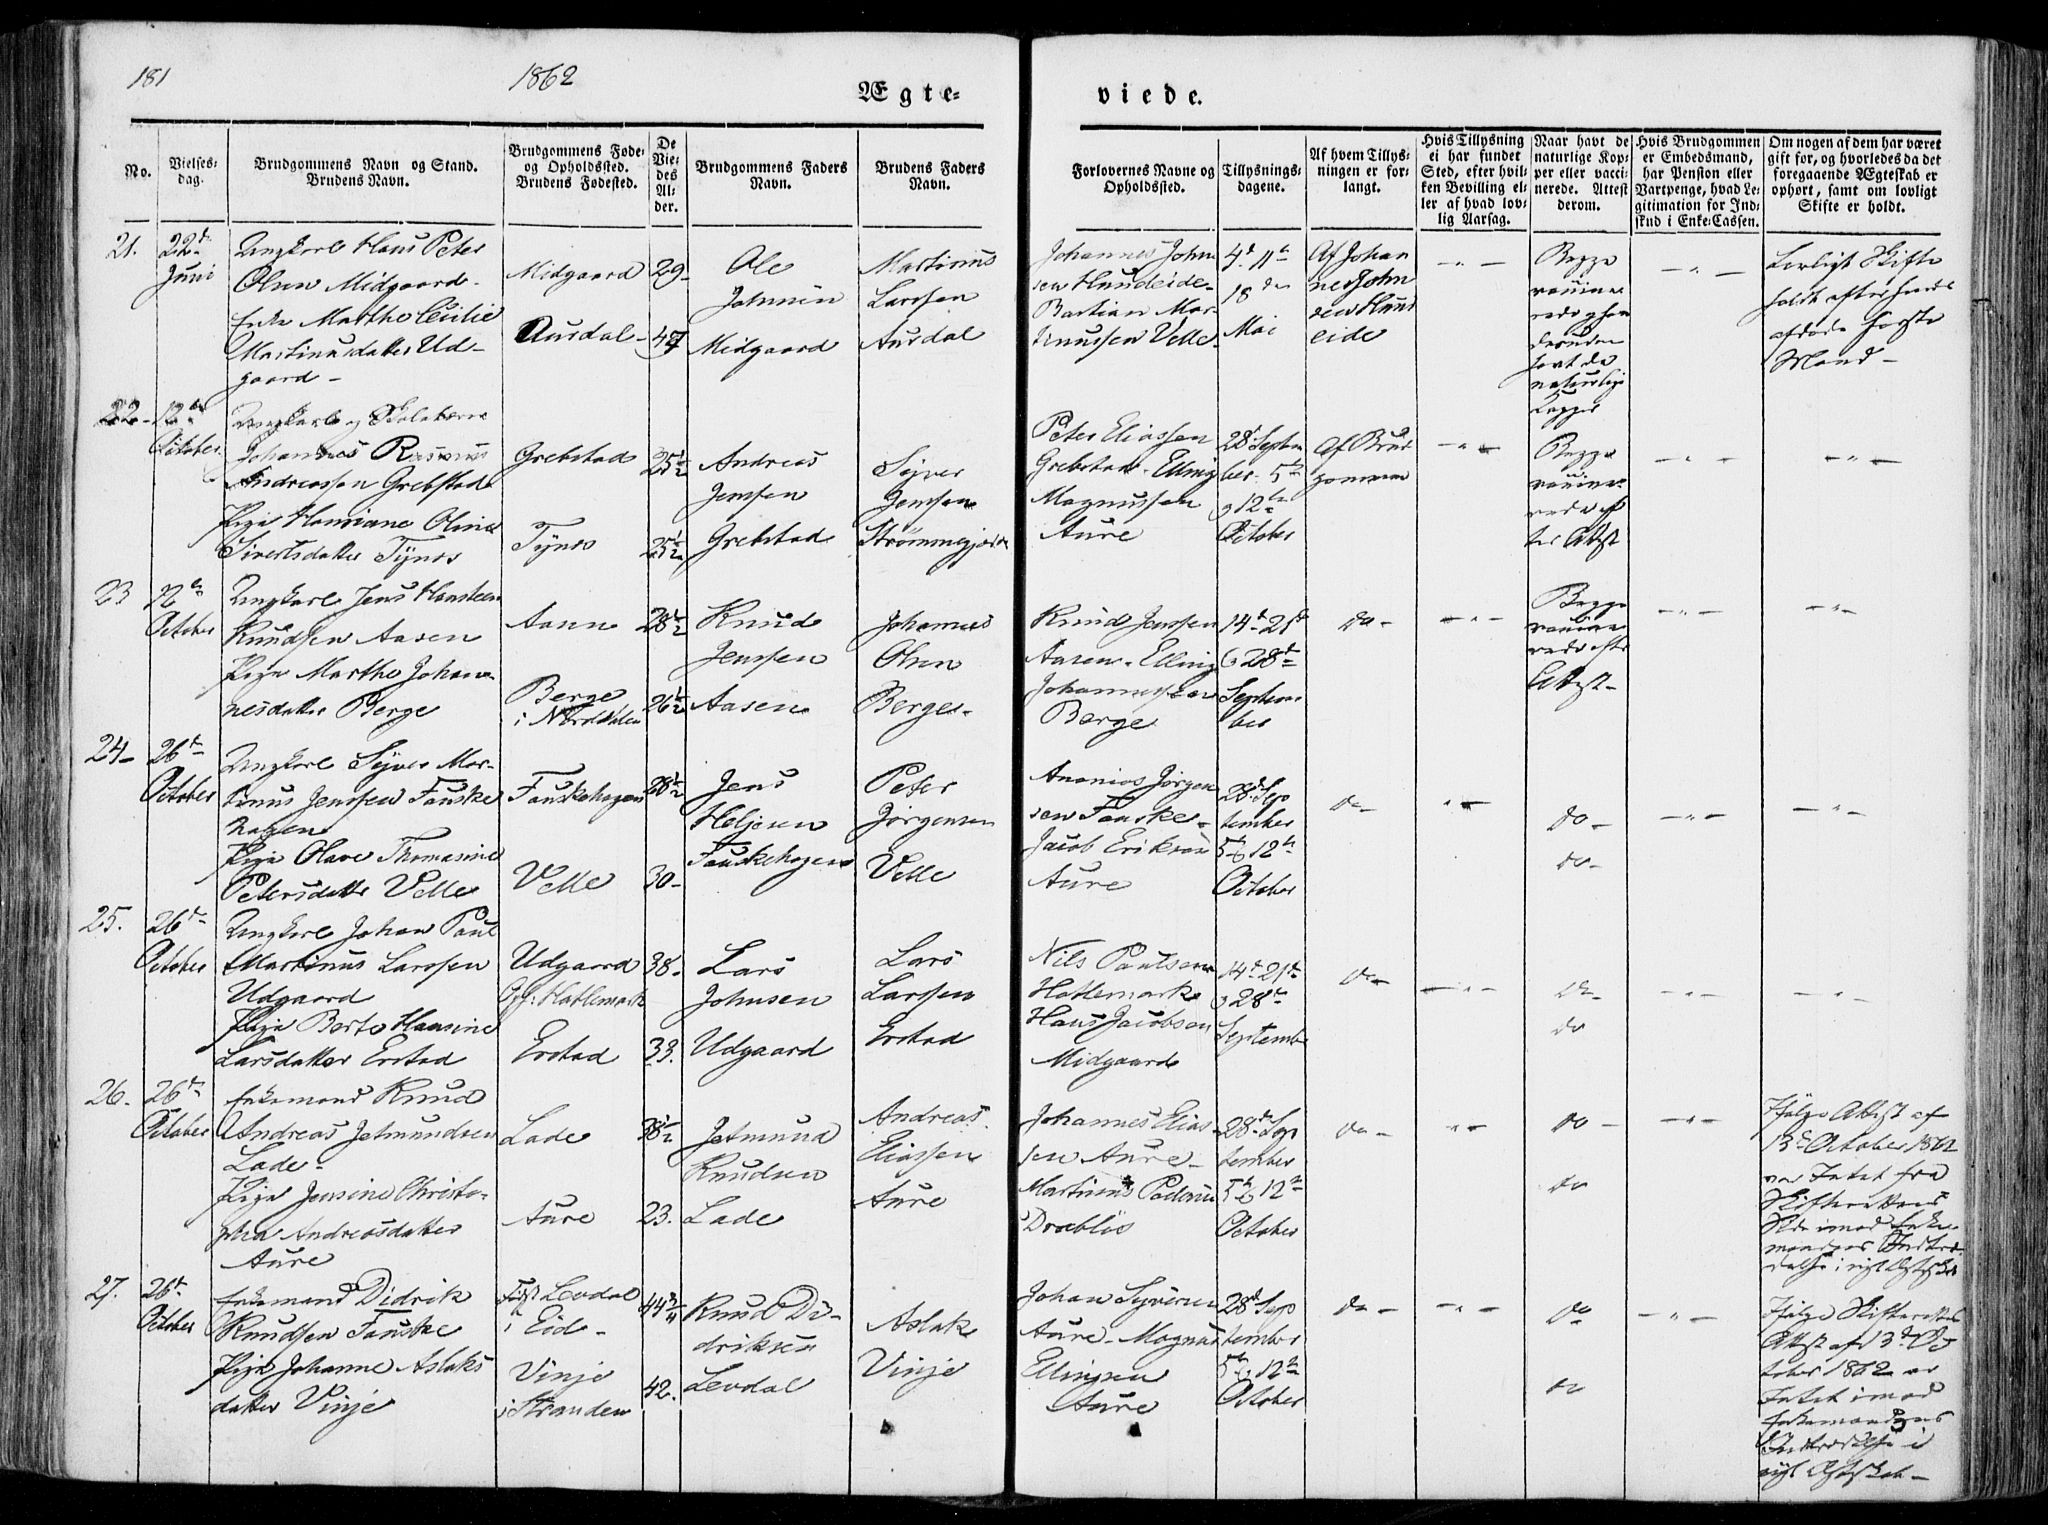 181
1862
Ægte-
viede.
No.
Vielses-
dag.
Brudgommens Navn og Stand.
Brudens Navn.
Brudgommens Føde-
og Opholdssted.
Brudens Fødested.
De
Vie-
des
Al-
der.
Brudgommens Faders
Navn.
Brudens Faders
Navn.
Forlovernes Navne og
Opholdssted.
Tillysnings-
dagene.
Af hvem Tillys-
ningen er for-
langt.
Hvis Tillysning
ei har fundet
Sted, efter hvil-
ken Bevilling el-
ler af hvad lov-
lig Aarsag.
Naar havt de
naturlige Kop-
per eller vacci-
nerede. Attest
derom.
Hvis Brudgommen
er Embedsmand,
har Pension eller
Vartpenge, hvad Le-
gitimation for Ind-
skud i Enke-Cassen.
Om nogen af dem har været
gift før, og hvorledes da det
foregaaende Ægteskab er
ophørt, samt om lovligt
Skifte er holdt.
21.
22de
Juni
Ungkarl Hans Peter
Olsen Midgaard
Enke Marthe Cecilie
Martinusdatter Ud-
gaard
Midgaard
Aursdal
29
47
Ole
Johnsen
Midgaard
Martinus
Larssen
Aursdal
Johannes John
sen Hundeide
Bastian Mar-
tinussen Velle
4de 11te
18den
Mai
Af Johan
nes John
sen Hund
eide
Begge
naturlige
Kopper
Lovligt Skifte
holdt efter hendes
afdøde første
Mand
22
12te
October
Ungkarl og
Johannes Rasmus
Andreassen Grebstad
Pige Hansiane Oline
Sivertsdatter Tynes
Grebstad
Tynes
25 1/2
25 1/2
Andreas
Jenssen
Grebstad
Syver
Jenssen
Strømmegjerde
Peter Eliassen
Grebstad. Elling
Magnussen
Aure
28de Septem
ber. 5te
og 12te
October
Af Brud
gommen
Begge
vaccine
rede ef
ter Attest
23
12te
October
Ungkarl Jens Hansteen
Knudsen Aasen
Pige Marthe Johan-
nesdatter Berge
Aasen
Berge
i Norddalen
28 1/2
26 1/2
Knud
Jenssen
Aasen
Johannes
Olsen
Berge
Knud Jenssen
Aasen. Elling
Johannessen
Berge
14de 21de
& 28de
Septem
ber
do
Begge
vaccine
rede efter
Attest
24
26de
October
Ungkarl Syver Mar-
tinus Jenssen Fauske
hagen
Pige Olave Thomasine
Petersdatter Velle
Fauskehagen
Velle
28 1/2
30
Jens
Heljesen
Fauskehagen
Peter
Jørgensen
Velle
Ananias Jørgen
sen Fauske
Jacob Eriksen
Aure
28de Sep
tember
5te & 12te
October
do
do
do
25.
26de
October
Ungkarl Johan Paul
Martinus Larssen
Udgaard
Pige Berte Hansine
Larsdatter Erstad
Udgaard
Oph: Hatlemark
Erstad
38.
33.
Lars
Johnsen
Udgaard
Lars
Larssen
Erstad
Nils Paulsen
Hatlemark
Hans Jacobsen
Midgaard
14de 21de
og 28de
September
do
do
do
26.
26de
October
Enkemand Knud
Andreas Jetmundsen
Lade
Pige Jensine Christo-
phra Andreasdatter
Aure
Lade
Aure
38 1/2
23.
Jetmund
Knudsen
Lade
Andreas
Eliassen
Aure
Johannes Elias
sen Aure
Martinus Pedersen
Drabløs
28de Sep
tember
5te & 12te
October
do
do
do
Ifølge Attest af
13de October 1862
var Intet fra
Skifterettens
Side imod Enke-
mandens Indtræ-
delse i nyt Ægteskab
27.
26de
October
Enkemand Didrik
Knudsen Fauske
Pige Johanne Aslaks
datter Vinje
Født Levdal
i Eid
Vinje
i Stranden
44 3/4
42.
Knud Di-
driksen
Levdal
Aslak
Vinje
Johan Syversen
Aure. Magnus
Ellingsen
Aure
28de Sep
tember
5te & 12te
October
do
do
do
Ifølge Skifterettens
Attest af 13de Oc
tober 1862 er
Intet imod
Enkemandens
Indtrædelse i
nyt Ægteskab